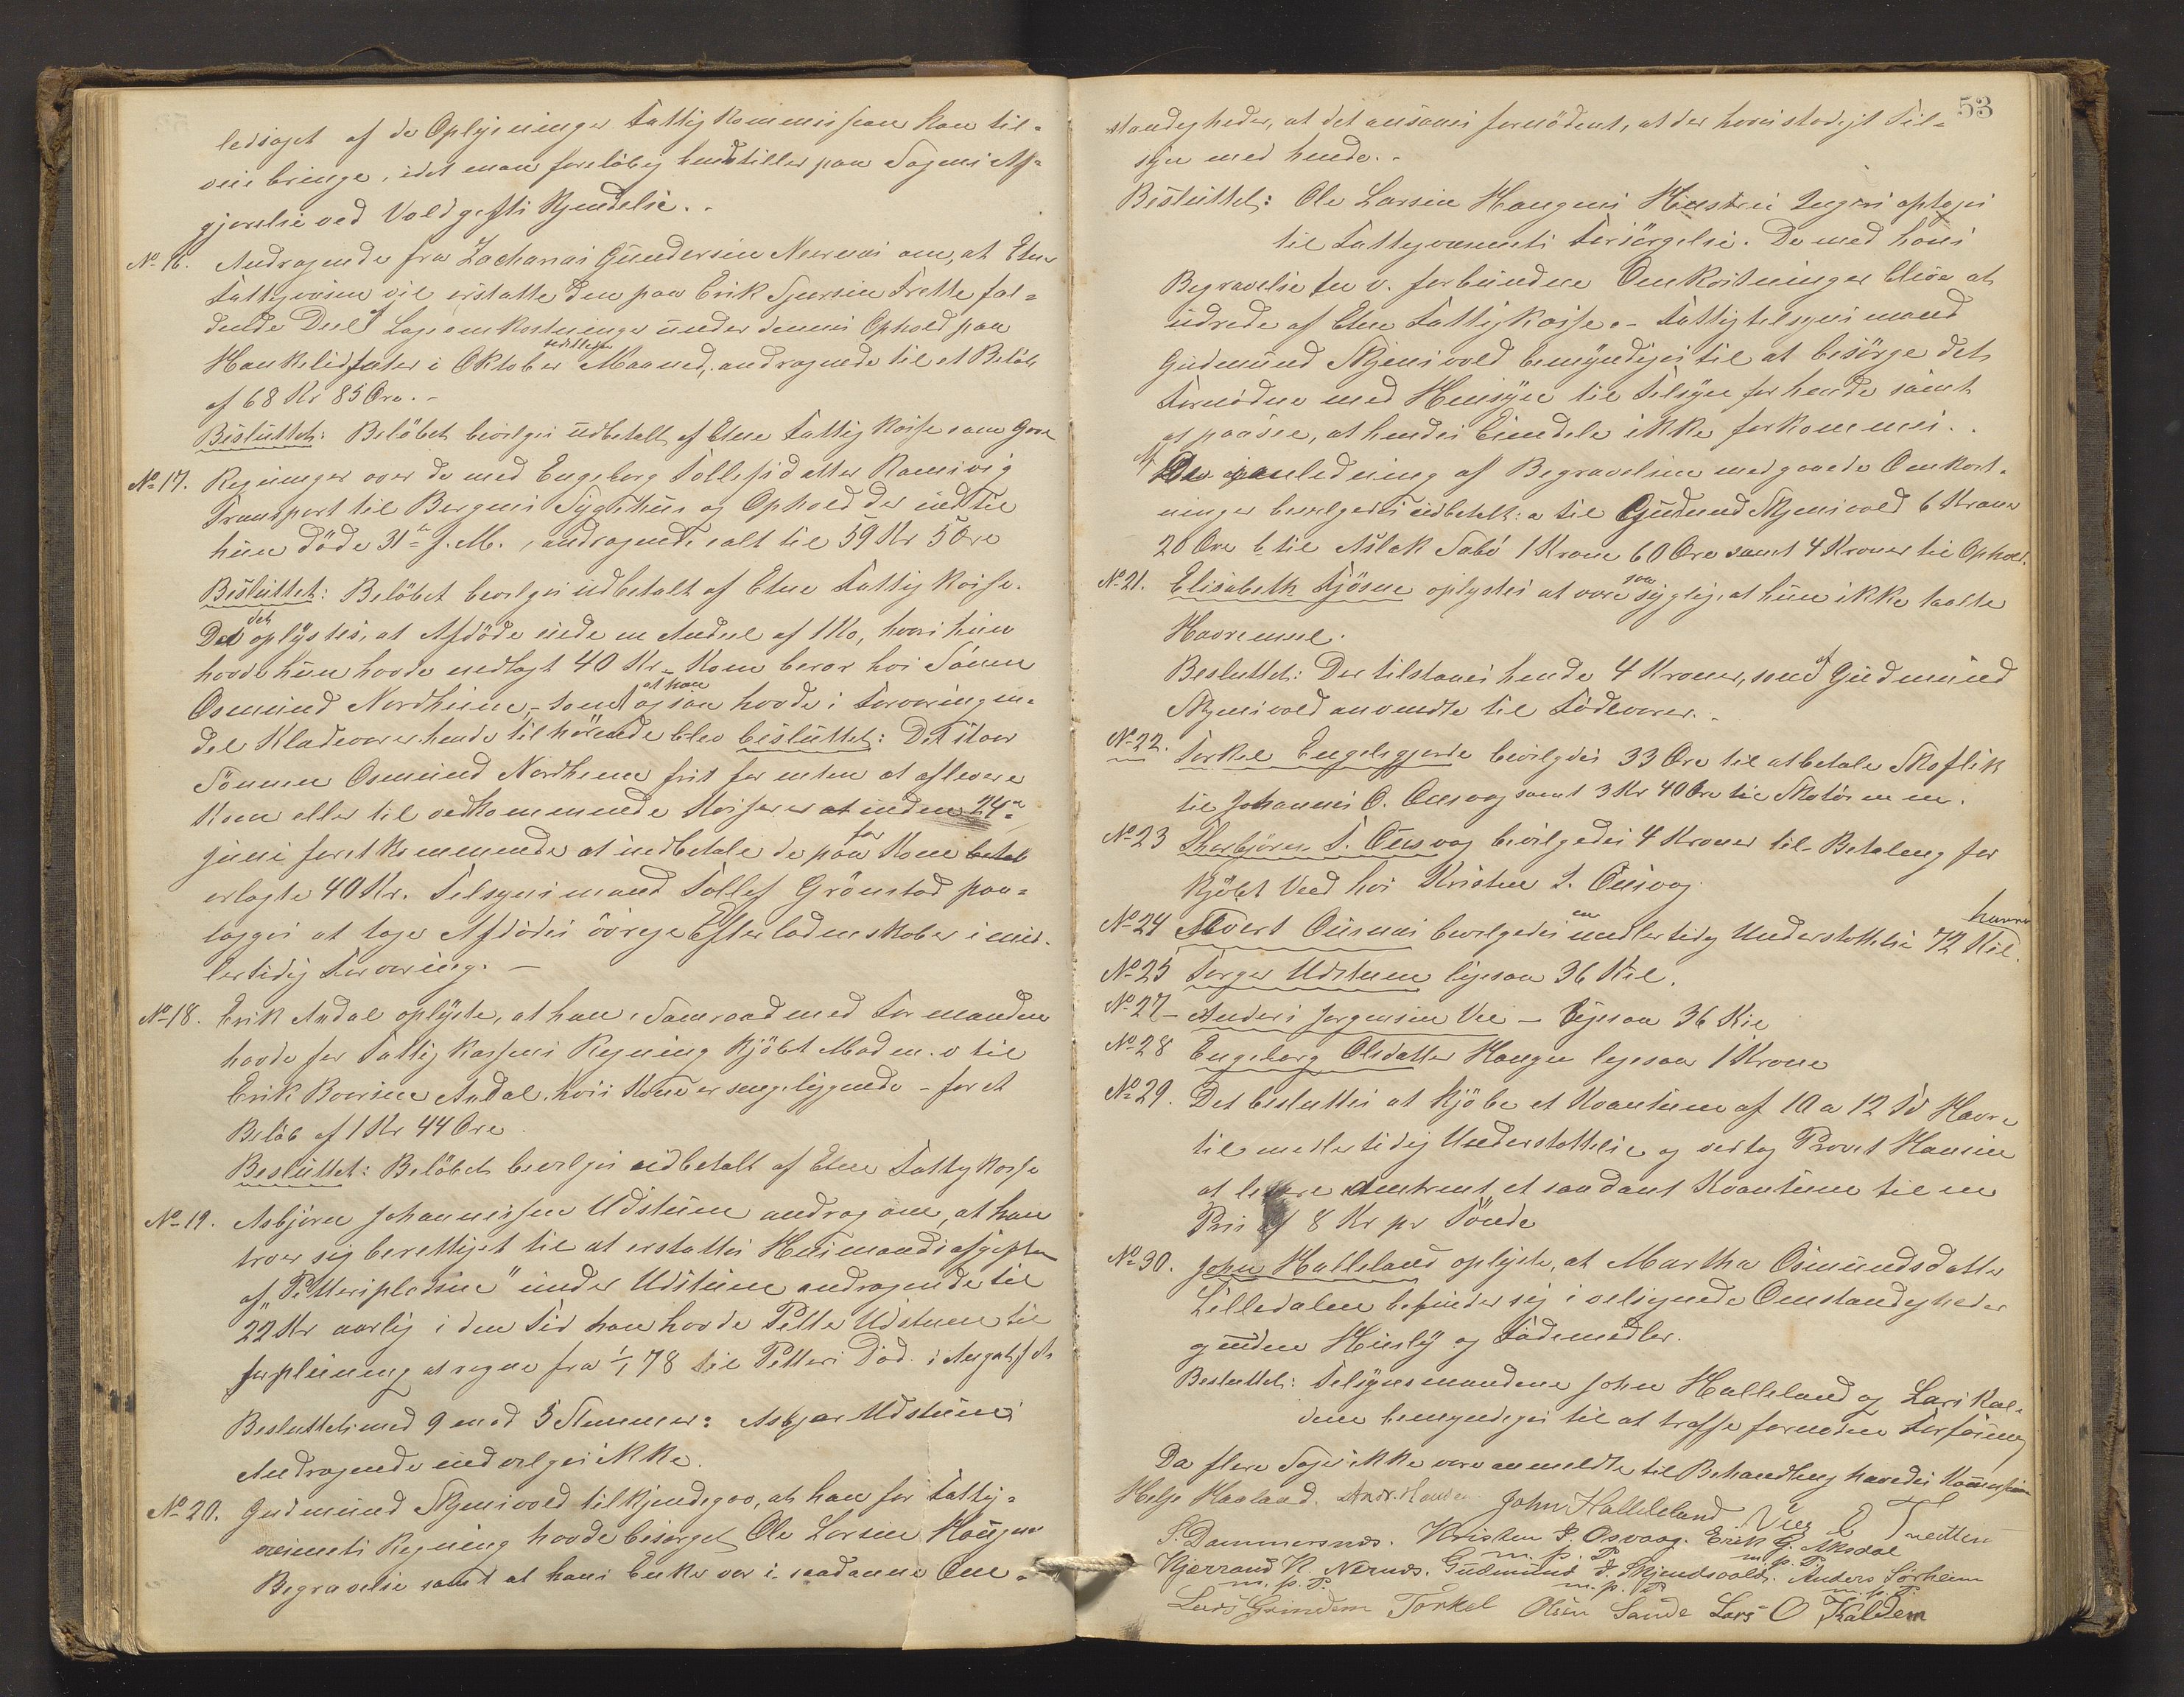 ledsaget af de Oplysninger Fattigkommissionen kan til-
veiebringe, idet man foreløbig henstiller paa Sagens Af-
gjørelse ved Voldgifts Kjendelse. -
No 16. Andragende fra Zacharias Gundersen Nernæs om, at Etne
Fattigvæsen vil erstatte den paa Erik Sjursen Frette fal-
dende Deel af Lægeomkostninger under dennes Ophold paa
Haukelidsæter i Oktober sidstleden Maaned, andragende til et Beløb
af 68 Kr 85 Øre. -
Besluttet: Beløbet bevilges udbetalt af Etne Fattigkasse som Gave
No 17. Regninger over de med Engeborg Tollefsdatter Ramsvig
Transport til Bergens Sygehus og Ophold der indtil
hun døde 31te f. M., andragende ialt til 59 Kr 5 Øre
Besluttet: Beløbet bevilges udbetalt af Etne Fattigkasse.
Da det oplystes, at Afdøde eiede en Andeel af 1 Ko, hvori hun
havde hun havde nedlagt 40 Kr - Koen beror hos Sønnen
Osmund Nordheim, - samt at han ogsaa havde i Forvaring en-
del Klædevarer hende tilhørende blev besluttet: Det staar
Sønnen Osmund Nordheim frit for enten at aflevere
Koen eller til vedkommende Kasserer at inden 24de
Juni førstkommende at indbetale de paa for Koen betal
erlagte 40 Kr. Tilsynsmand Tollef Grønstad paa-
lægges at tage Afdødes øvrige Efterladenskaber i mid-
lertidig Forvaring. -
No 18. Erik Andal oplyste, at han i Samraad med Formanden
havde for Fattigkassens Regning kjøbt Mad m. v til
Erik Baarsen Andal, hvis Kone er sengeliggende - for et
Beløb af 1 Kr 44 Øre
Besluttet: Beløbet bevilges udbetalt af Etne Fattigkasse
No 19. Asbjørn Johannessen Udstuen androg om, at han
troer sig berettiget til at erstattes Husmandsafgiften
af "Petterspladsen" under Udstuen andragende til
22 Kr aarlig i den Tid han havde Petter Udstuen til
forpleining at regne fra 1/1 78 til Petters Død i August f A
Besluttet med 9 mod 5 Stemmer: Asbjørn Udstuens
Andragende indvilges ikke.
No 20. Gudmund Skjensvold tilkjendegav, at han for Fattig-
væsenets Regning havde besørget Ole Larsen Haugen
Begravelse samt at hans Enke var i saadanne Om-
53
stændigheder, at det ansaaes fornødent, at der havdes stadigt Til-
syn med hende. -
Besluttet: Ole Larsen Haugens Hustru Ingeri optages
til Fattigvæsenets Forsørgelse. De med hans
Begravelse m v. forbundne Omkostninger blive at
udrede af Etne Fattigkasse. - Fattigtilsynsmand
Gudmund Skjensvold bemyndiges til at besørge det
Fornødne med Hensyn til Tilsyn for hende samt
at paasee, at hendes Eiendele ikke forkommes. -
Af de i anledning af Begravelsen medgaaede Omkost-
ninger bevilgedes udbetalt: a til Gudmund Skjensvold 6 Kroner
20 Øre b til Aslak Sabø 1 Krone 60 Øre samt 4 Kroner til Ophold.
No 21. Elisabeth Tjøsne oplystes at være saa syglig, at hun ikke taalte
Havremeel.
Besluttet: Der tilstaaes hende 4 Kroner, som af Gudmund
Skjensvold anvendte til Fødevarer. -
No 22. Torkel Engelsgjerde bevilgedes 33 Øre til at betale Skoflik
til Johannes O. Øensvaag samt 3 Kr 40 Øre til Skotøi m m.
No 23 Thorbjørn T. Øensvaag bevilgedes 4 Kroner til Betaling for
kjøbt Ved hos Kristen I. Øensvaag
No 24 Sivert Øiernæs bevilgedes en midlertidig Understøttelse 72 Kil. havre
No 25 Torger Udstuen ligesaa 36 Kil.
No 27 - Anders Jørgensen Vie - ligesaa 36 Kil
No 28 Engeborg Olsdatter Haugen ligesaa 1 Krone
No 29. Det besluttes at kjøbe et Kvantum af 10 a 12 Td Havre
til midlertidig Understøttelse og vedtog Provst Hansen
at levere omtrent et saadant Kvantum til en
Pris af 8 Kr pr Tønde
No 30. John Halleland oplyste, at Martha Osmundsdatter
Lilledalen befinder sig i velsignede Omstændigheder
og uden Huusly og Fødemidler.
Besluttet: Tilsynsmændene John Halleland og Lars Kal-
dem bemyndiges til at træffe fornøden Forføining
Da flere Sager ikke vare anmeldte til Behandling hævedes Kommissionen
Helge Haaland. Andr. Hansen John Halleleland.
S. Dammersnes. Kristen I. Osvaag. Erik G. Aksdal
m. p. P. m. p. P.
Kjærrand K. Nernes. Gudmund d. Skjendsvold. Anders Sørheim
m. p. P. m. p. P m. p. P.
Lars Grindem Torkel Olsen Sande Lars O Kaldem